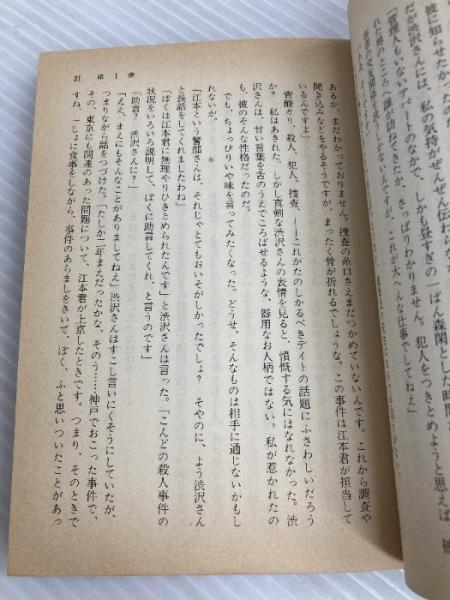 彼に知らせたか、た
だが渋沢さんには、私の気持がぜんぜん伝わら
「管理人もいないアパートのなかで、しかも昼すぎの一ばん森閑とした時間
れた男のところへ誰が訪ねてきたか、さっぱりわかりません。犯人をつきとめようと思えば、被
ないんですが、これが大へんな仕事でしてねえ」
21 第１章
あるか、まだわかっておりません。捜査の糸口さえまだつかめていないんです。これから調査や
聞き込みなどをやるそうですが、まったく骨が折れるでしょうな。この事件は江本君が担当して
いるんですよ」
青酸かり、殺人、犯人、捜査、――これがたのしかるべきデイトの話題にふさわしいだろう
か？ 私はあきれた。しかし真剣な渋沢さんの表情を見ると、憤慨する気にはなれなかった。渋
沢さんは、甘い言葉を舌のうえでころばせるような、器用なお人柄ではない。私が惹かれたの
も、彼のそんな性格だったのだ。
でも、ちょっぴりいや味を言ってみたくなった。どうせ、そんなものは相手に通じないかもし
れないが。
「江本という警部さんは、それじゃとてもおいそがしかったでしょ？ そやのに、よう渋沢さん
と長話をしてくれましたわね」
「ぼくは江本君に無理やりひきとめられたんです」と渋沢さんは言った。「こんどの殺人事件の
状況をいろいろ説明して、ぼくに助言してくれ、と言うのです」
「助言？ 渋沢さんに？」
「ええ、まえにもそんなことがありましてねえ」渋沢さんはすこし言いにくそうにしていたが、
つまりながら話をつづけた。「たしか二年まえだったかな、そのう……神戸でおこった事件で、
その、東京にも関連のあった問題について、江本君が上京したときです。つまり、そのときで
すね、一しょに食事をしながら、事件のあらましをきいて、ぼく、ふと思いついたことがあっ